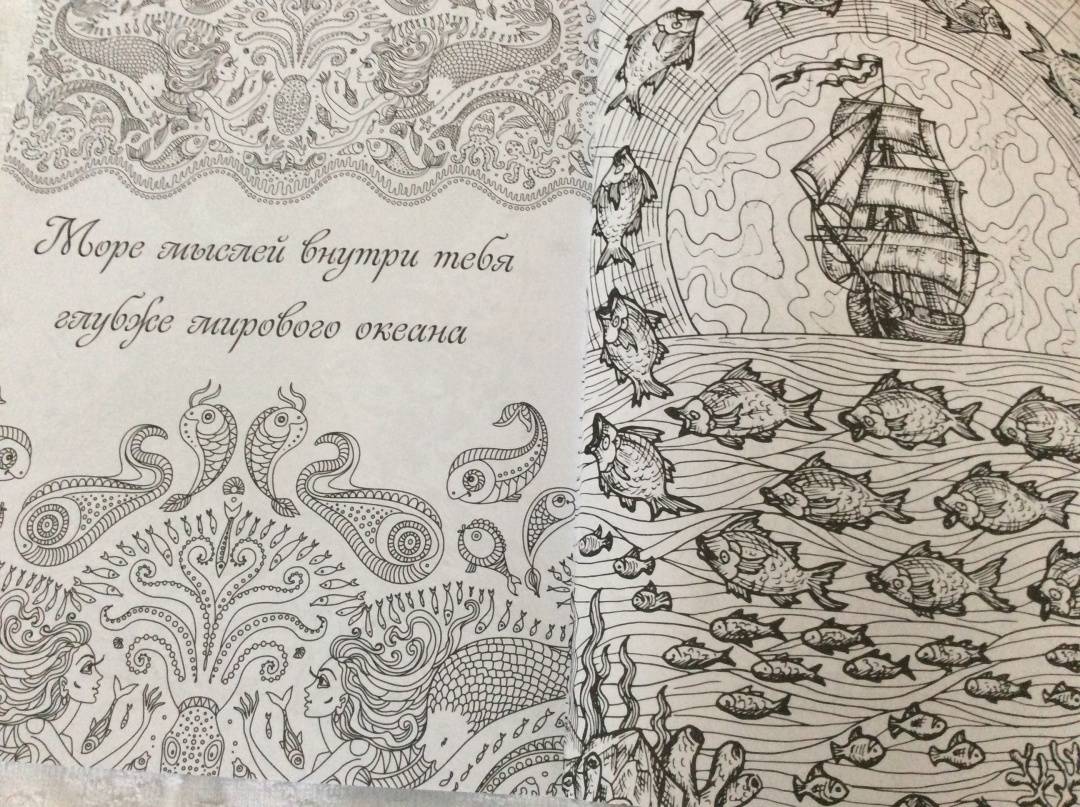 Море мыслей внутри тебя
глубже мирового океана